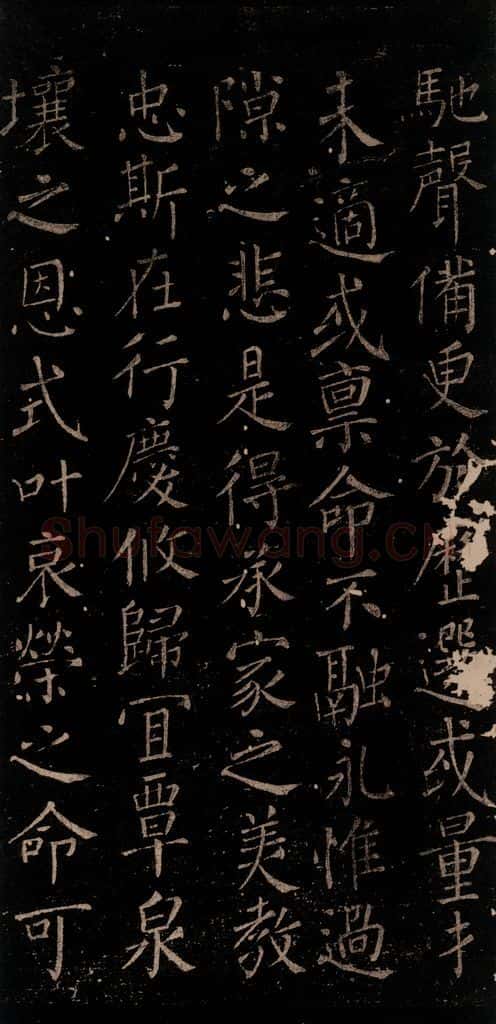 馳聲備更於歷選或量才
未適或稟命不融永惟過
隙之悲是得承家之美教
忠斯在行慶攸歸宜覃泉
壤之恩式叶哀榮之命可
Shufawang.cn